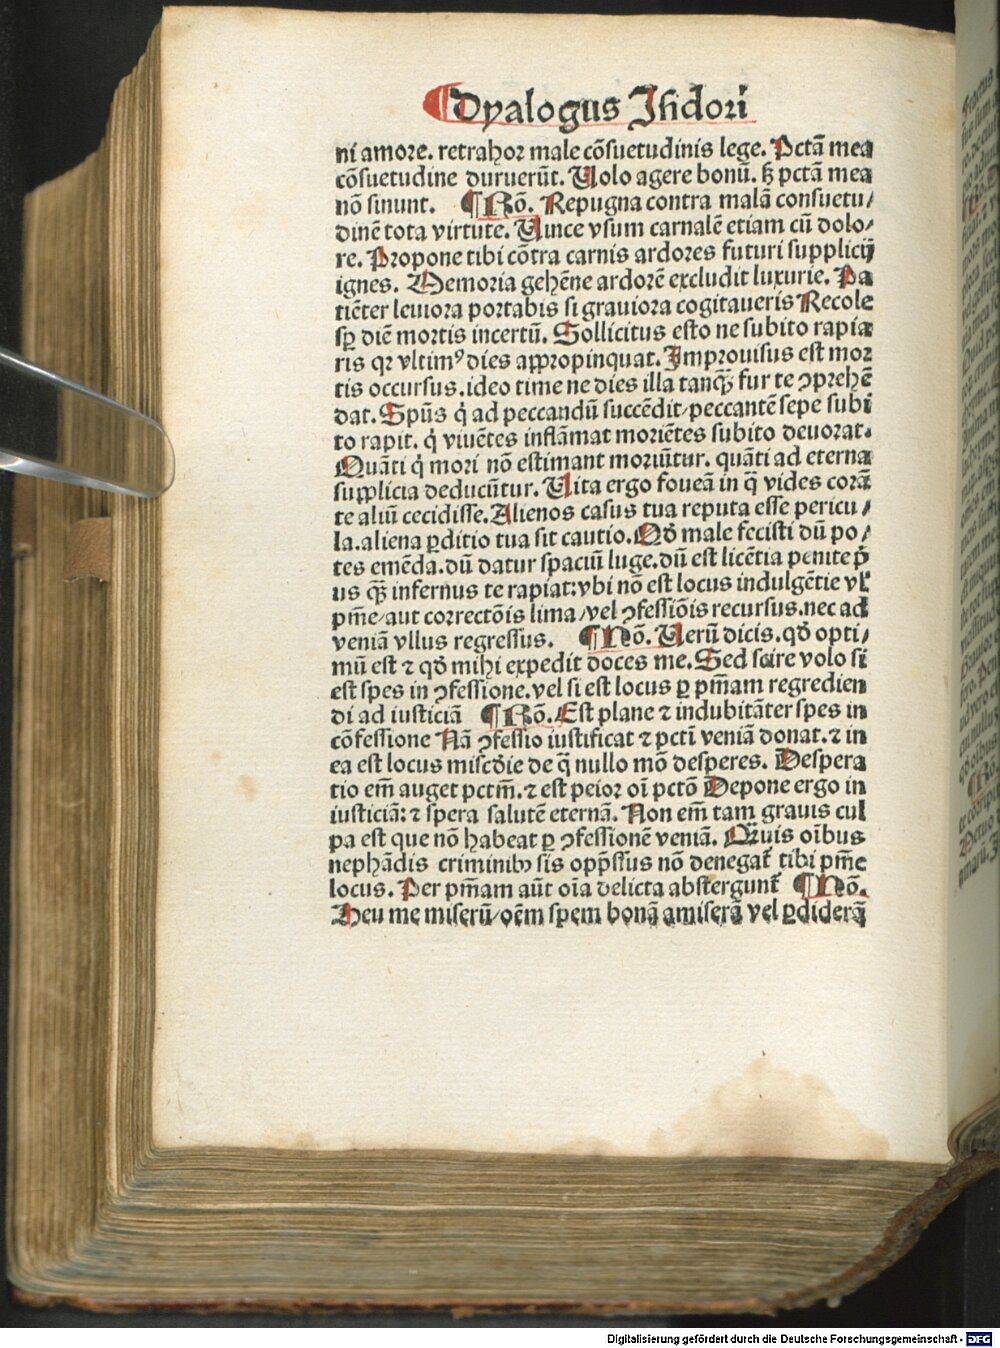 ¶Dyalogus Isidori
ni amore. retrahor male cõsuetudinis lege. Pctã mea
cõsuetudine duruerũt. Uolo agere bonũ. ꝫ pctã mea
nõ sinunt. ¶Rõ. Repugna contra malã consuetu/
dinẽ tota virtute. Uince vsum carnalẽ etiam cũ dolo/
re. Propone tibi cõtra carnis ardores futuri supplicij
ignes. Memoria gehẽne ardorẽ excludit luxurie. Pa
tiẽter leuiora portabis si grauiora cogitaueris Recole
sꝑ diẽ mortis incertũ. Sollicitus esto ne subito rapia
ris qꝛ vltimꝰ dies appropinquat. Improuisus est mor
tis occursus. ideo time ne dies illa tanqꝫ fur te ꝯprehẽ
dat. Spũs q̇ ad peccandũ succẽdit/peccantẽ sepe subi
to rapit. q̇ viuẽtes inflãmat moriẽtes subito deuorat.
Quãti q̇ mori nõ estimant moriũtur. quãti ad eterna
supplicia deducũtur. Uita ergo foueã in q̃ vides corã
te aliũ cecidisse. Alienos casus tua reputa esse pericu/
la. aliena ꝑditio tua sit cautio. Qð male fecisti dũ po/
tes emẽda. dũ datur spaciũ luge. dũ est licẽtia penite p̃
us qꝫ infernus te rapiat: vbi nõ est locus indulgẽtie vĺ
pm̃e/aut correctõis lima/vel ꝯfessiõis recursus. nec ad
veniã vllus regressus. ¶Hõ. Uerũ dicis. qð opti/
mũ est ⁊ qð mihi expedit doces me. Sed scire volo si
est spes in ꝯfessione. vel si est locus ꝑ pm̃am regredien
di ad iusticiã ¶Rõ. Est plane ⁊ indubitãter spes in
cõfessione Nã ꝯfessio iustificat ⁊ pcti veniã donat. ⁊ in
ea est locus misc̃die de q̃ nullo mõ desperes. Despera
tio em̃ auget pctm̃. ⁊ est peior oĩ pctõ Depone ergo in
iusticiã: ⁊ spera salutẽ eternã. Non em̃ tam grauis cul
pa est que nõ habeat ꝑ ꝯfessionẽ veniã. Qꝫuis oĩbus
nephãdis criminibꝰ sis opp̃ssus nõ denegat̃ tibi pm̃e
locus. Per pm̃am aũt oĩa delicta abstergunt̃ ¶Hõ.
Heu me miserũ/oẽm spem bonã amiserã vel ꝑdiderã
Digitalisierung gefördert durch die Deutsche Forschungsgemeinschaft - DFG